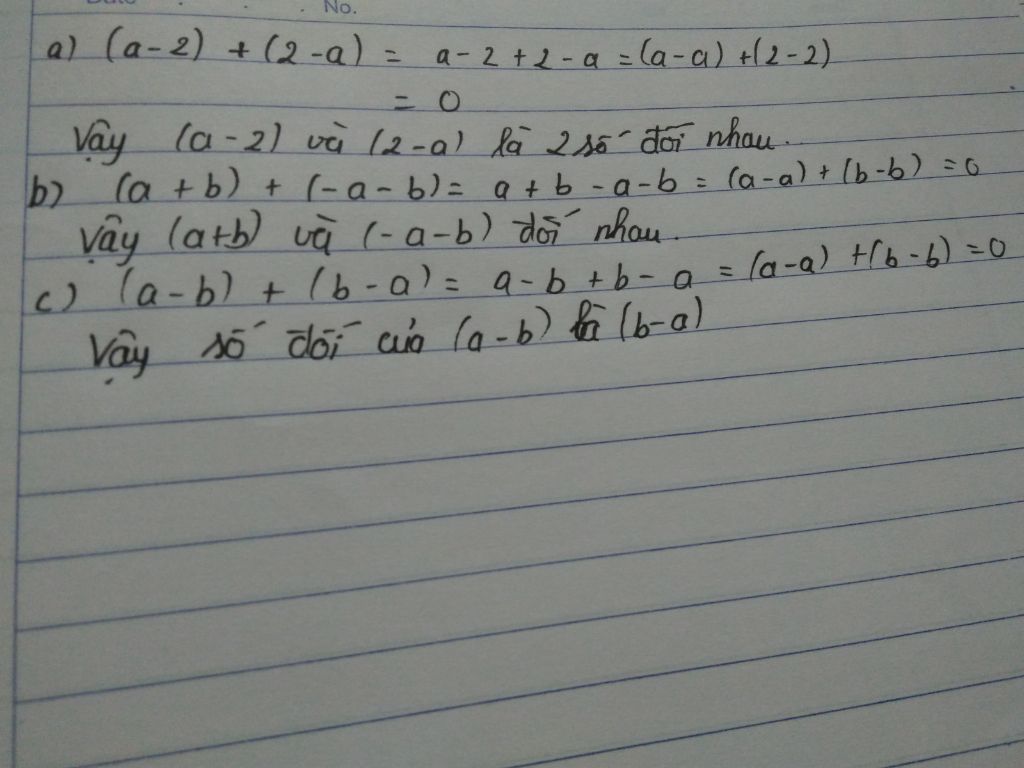 No.
a) (a-2) + (2-a) = a-2+2-a = (a-a) + (2-2)
= 0
Vậy (a-2) và (2-a) là 2 số đối nhau.
b) (a+b) + (-a-b) = a+b-a-b = (a-a) + (b-b) = 0
Vậy (a+b) và (-a-b) đối nhau.
c) (a-b) + (b-a) = a-b+b-a = (a-a) + (b-b) = 0
Vậy số đối của (a-b) là (b-a)